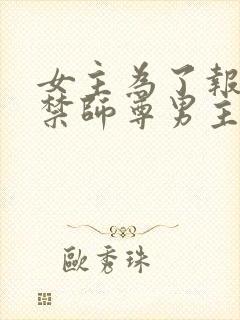 女主為了報
禁師尊男主
歐秀珠